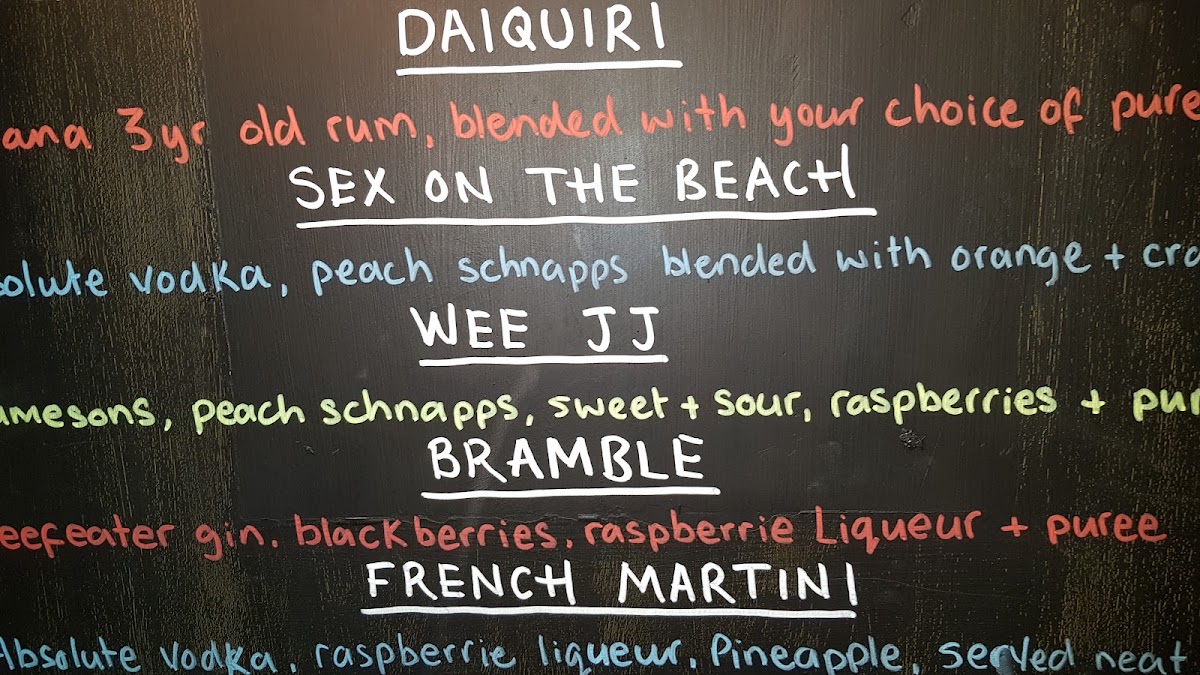 DAIQUIRI
ana 3yr old rum, blended with your choice of puree
SEX ON THE BEACH
solute vodka, peach schnapps blended with orange + cra
WEE JJ
amesons, peach schnapps, sweet + sour, raspberries + pur
BRAMBLE
eefeater gin. blackberries, raspberrie Liqueur + puree
FRENCH MARTINI
Absolute vodka, raspberrie liqueur, Pineapple, served neat